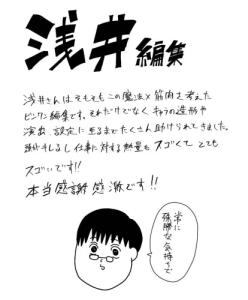 浅井編集
浅井さんはそもそもこの魔法×筋肉を考えた
ビンワン編集です。それだけでなくキャラの造形や
演出、設定に至るまでたくさん助けられてきました。
助かるし仕事に対する熱量もスゴくてとても
スゴいです!!
本当感謝感激です!!
常に
殊勝な気持ちで